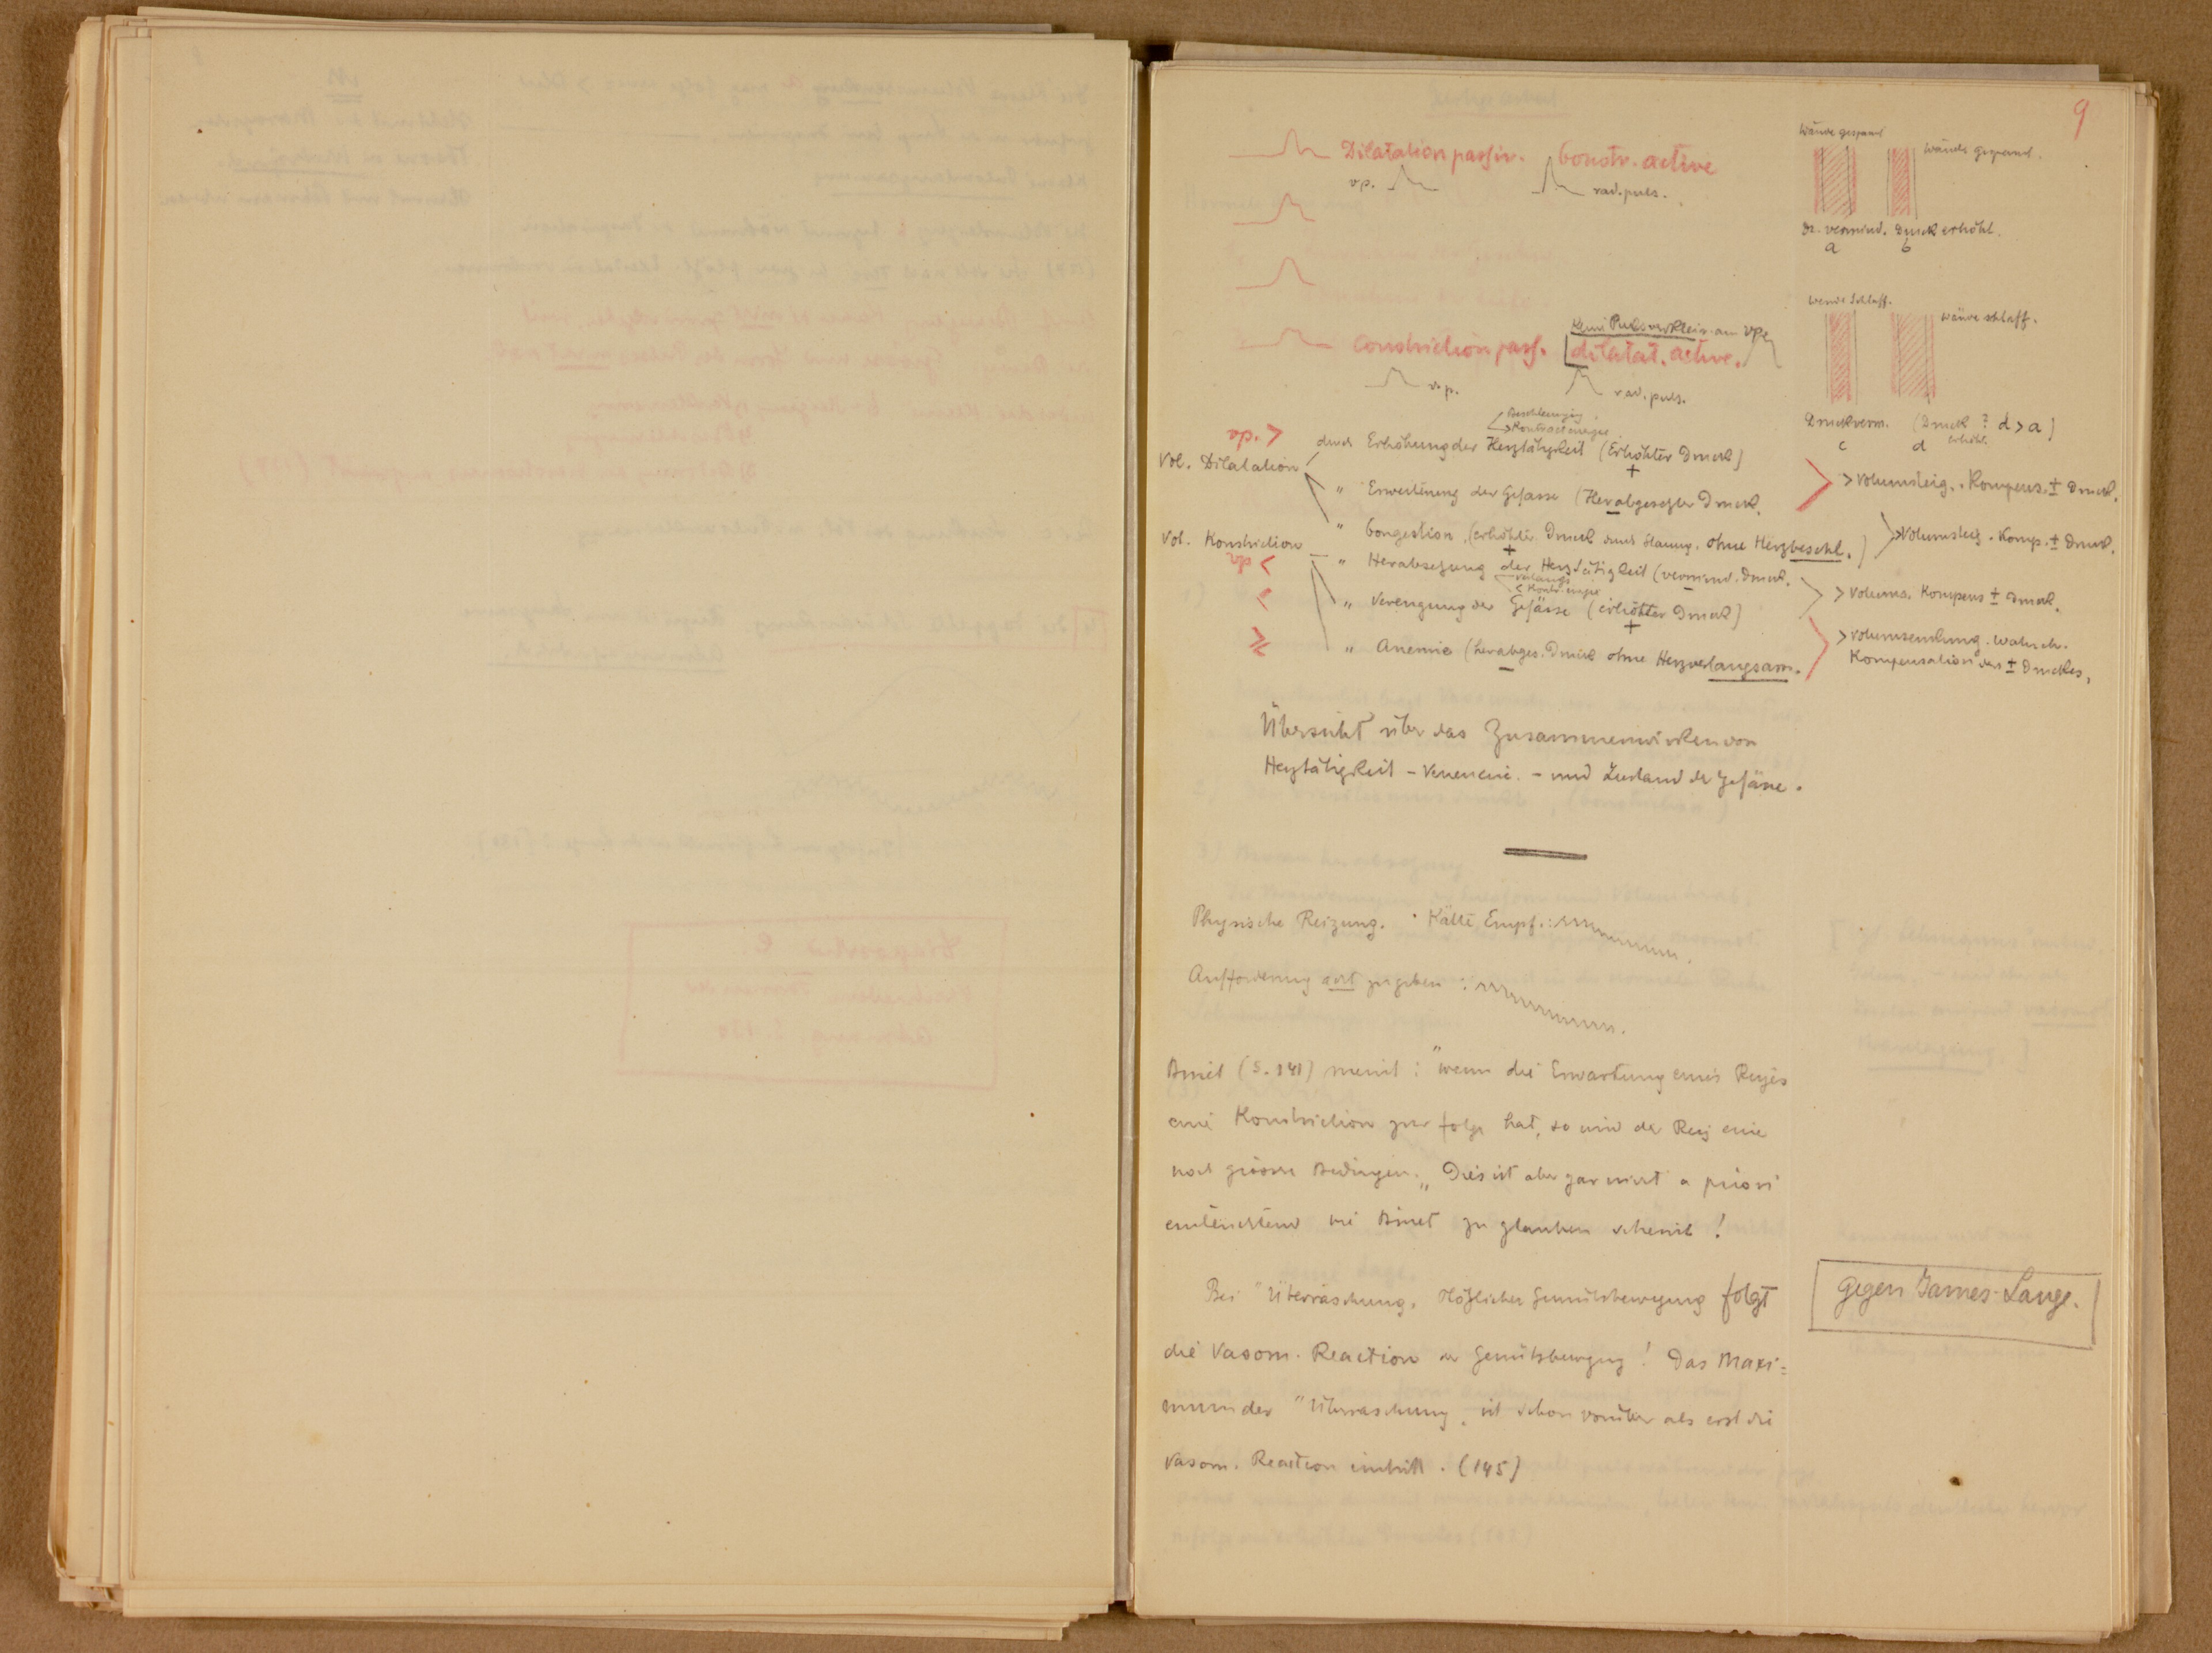 9
Dilatation passiv. Constr. active
vp. rad. puls.
Wände gespannt
Wände gespannt.
Dr. vermind. Druck erhöht.
a b
Wände Schlaff.
Wände schlaff.
Keine Pulsverklein. am Vp.
Constriction pass. dilatat. active.
v. p. rad. puls.
Druckverm. (Druck ? d > a)
erhöht.
c d
Beschleunigg.
> Kontract energie
vp. < durch Erhöhung der Herztätigkeit (Erhöhter Druck)
+
Vol. Dilatation
" Erweiterung der Gefässe (Herabgesetzter Druck.
> Volumsteig. . Kompens. ± Druck.
" Congestion, (erhöhter Druck durch Stauung. ohne Herzbeschl.)
+
> Volumsteig. Komp. ± Druck.
Vol. Konstriction
" Herabsetzung der Herztätigkeit (vermind. Druck.
< Kontr. energie
" Verengung der Gefässe (erhöhter Druck)
+
> Voluma. Kompens ± Druck.
" Anemie (herabges. Druck ohne Herzverlangsam.
> Volumsenkung. Wahrsch.
Kompensation des ± Druckes.
Übersicht über das Zusammenwirken von
Herztätigkeit - - und Zustand der Gefässe.
Physische Reizung. Kälte Empf. :
Aufforderung acht zu geben :
Binet (S. 141) meint : "wenn die Erwartung eines Reizes
eine Konstriction zur folge hat, so wird der Reiz eine
noch grössere bedingen." Dies ist aber gar nicht a priori
einleuchtend wie Binet zu glauben scheint !
Bei "Überraschung, Plötzlicher Gemütsbewegung folgt
die Vasom. Reaction der Gemütsbewegung ! Das Maxi=
mum der "Überraschung" ist schon vorüber als erst die
Vasom. Reaction eintritt. (145)
Gegen James-Lange.